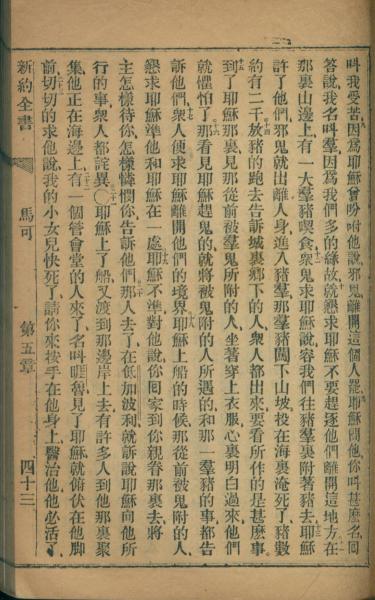 叫我受苦因爲耶穌曾吩咐他說邪鬼離開這個人罷耶穌問他你叫甚麽名回
答說我名叫羣因爲我們多的緣故就懇求耶穌不要趕逐他們離開這地方在
那裏山邊上有一大羣豬喫食衆鬼求耶穌說容我們往豬羣裏附著豬去耶穌
許了他們邪鬼就出離人身進入豬羣那羣豬闖下山坡投在海裏淹死了豬數
約有二千放豬的跑去告訴城裏鄉下的人衆人都出來要看所作的是甚麽事
到了耶穌那裏見那從前被羣鬼所附的人坐著穿上衣服心裏明白過來他們
就懼怕了那看見耶穌趕鬼的就將被鬼附的人所遇的和那一羣豬的事都告
訴他們衆人便求耶穌離開他們的境界耶穌上船的時候那從前被鬼附的人
懇求耶穌準他和耶穌在一處耶穌不準對他說你回家到你親眷那裏去將
主怎樣待你怎樣憐憫你告訴他們那人去了在低加波利就訴說耶穌向他所
行的事衆人都詫異〇耶穌上了船又渡到那邊岸上去有許多人到他那裏聚
集他正在海邊上有一個管會堂的人來了名叫睚魯見了耶穌就俯伏在他脚
前切切的求他說我的小女兒快死了請你來按手在他身上醫治他他必活了
新約全書 馬可 第五章 四十三